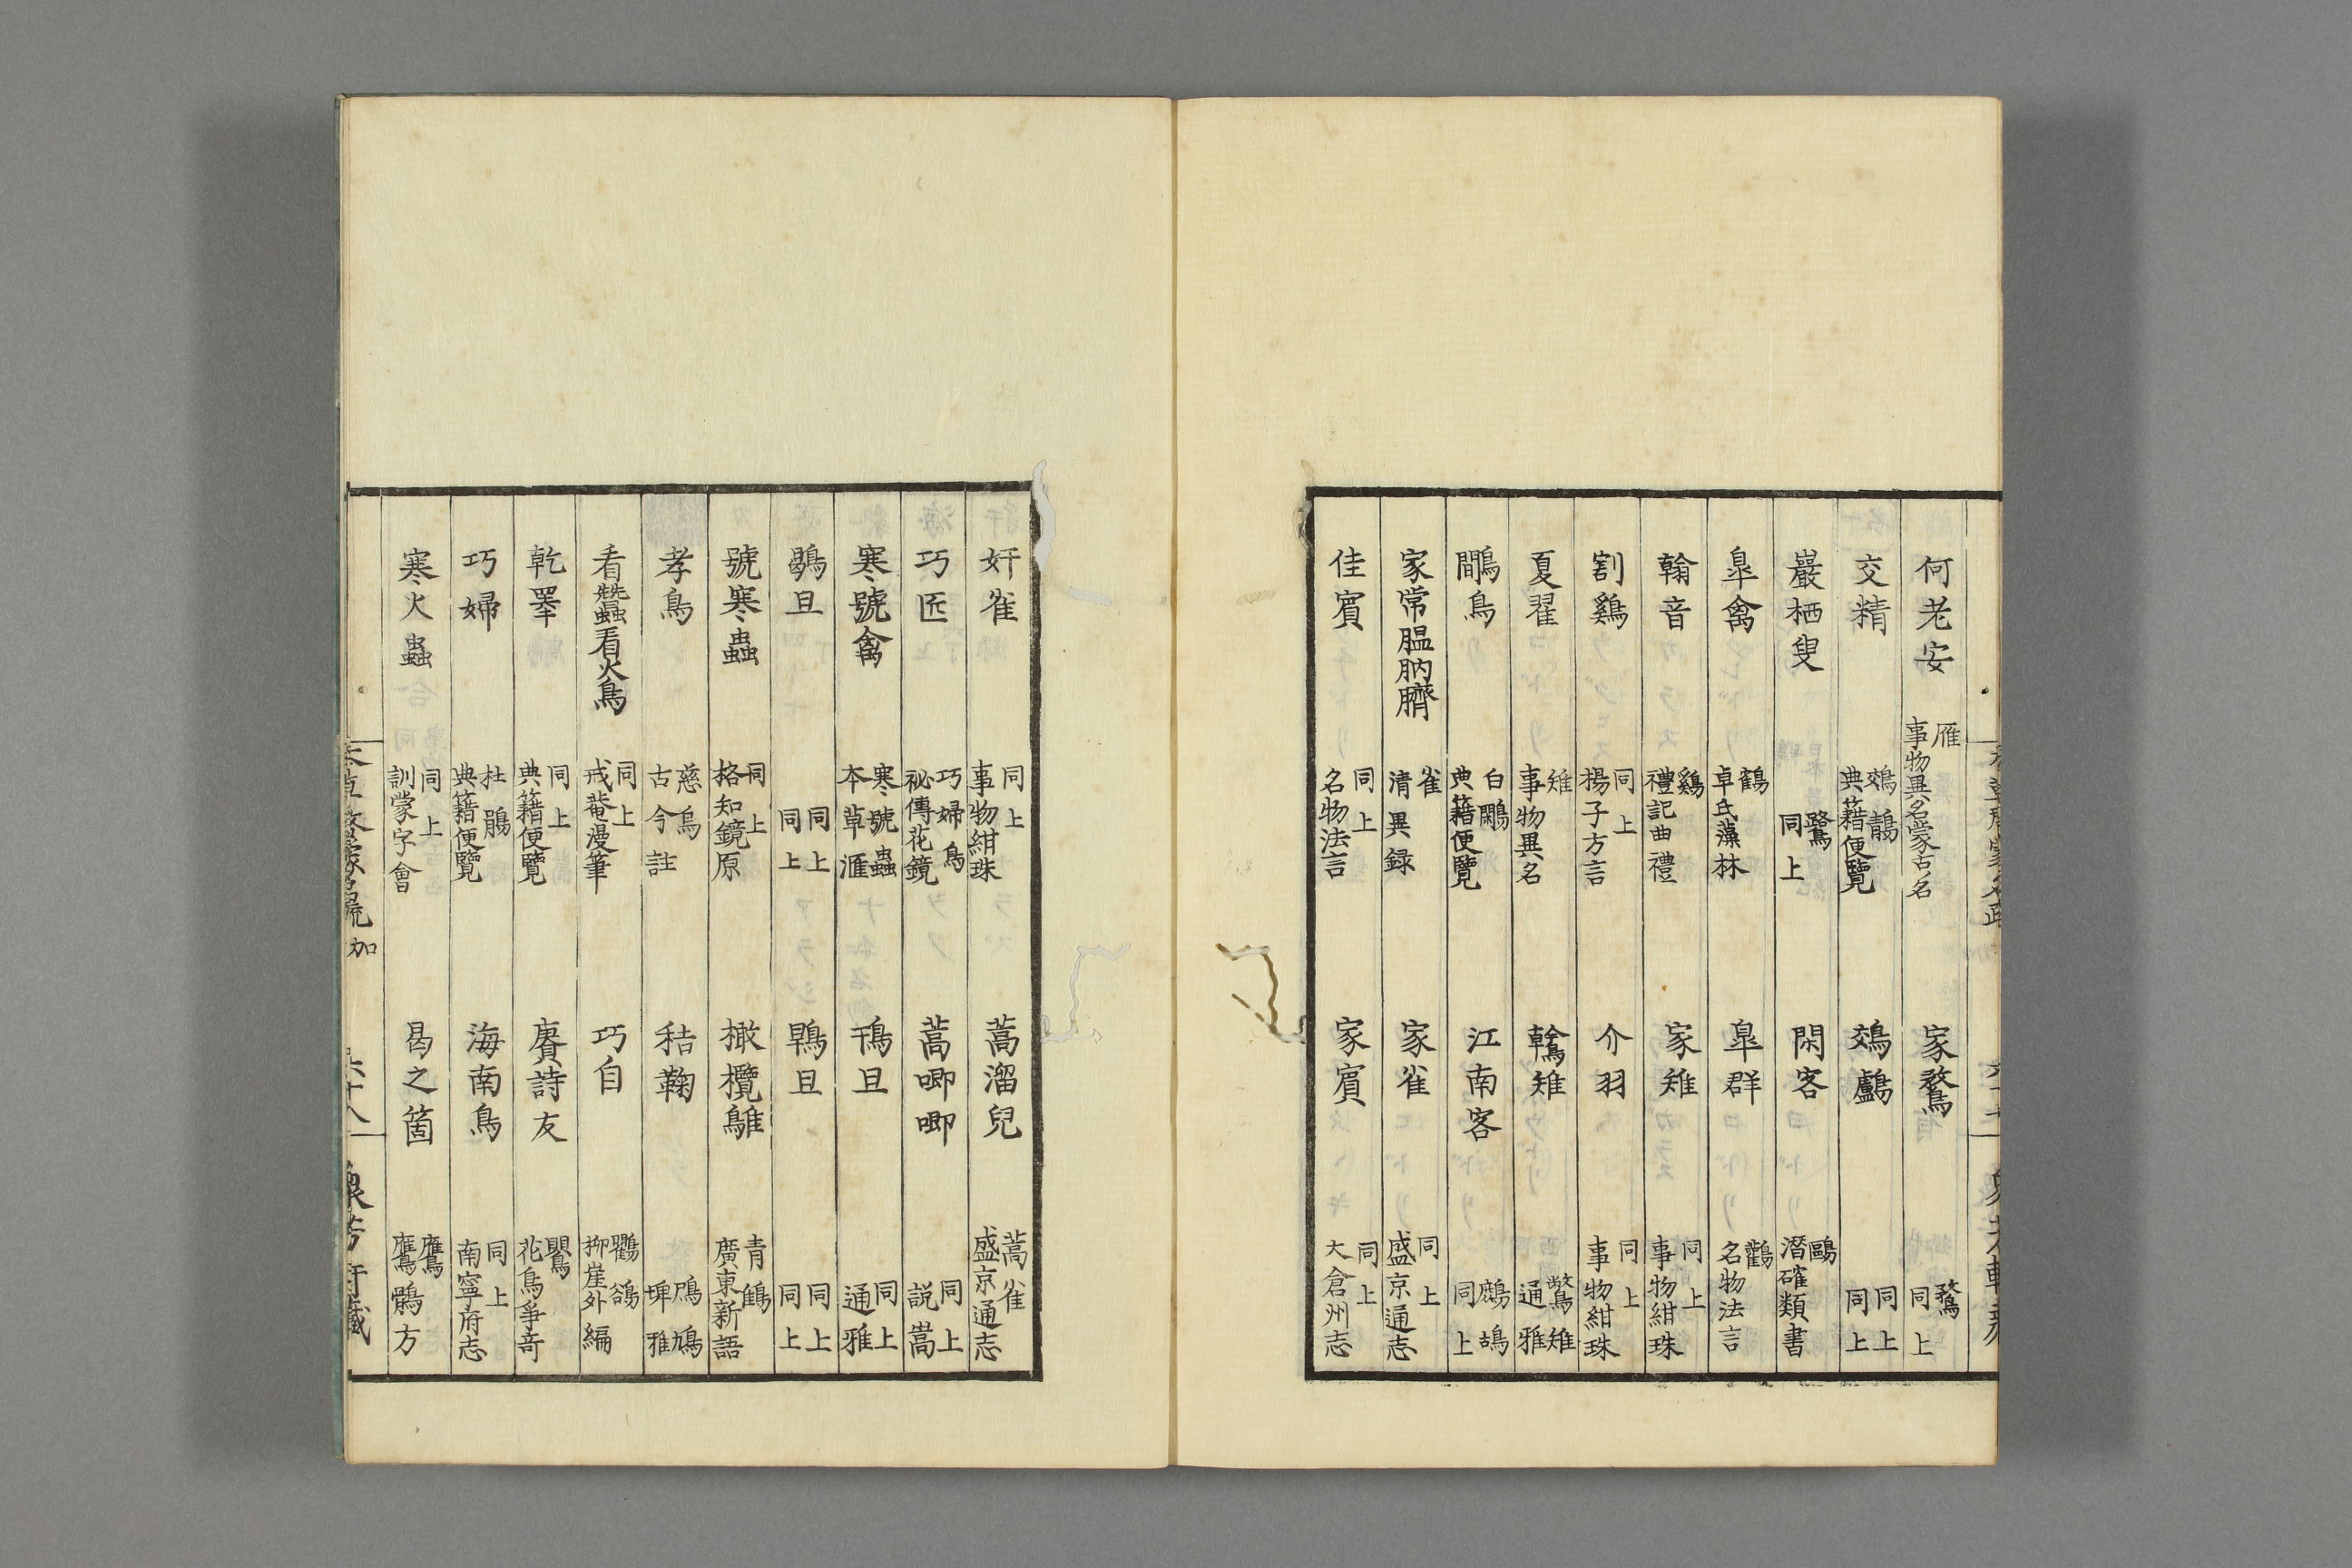 何老安 雁 事物異名蒙古名 家鶩 鶩 同上
交精 鵁鶄 典藉便覽 鵁鸕 同上 同上
巖栖叟 鷺 同上 閑客 鷗 潛確類書
皐禽 鶴 卓氏藻林 皐群 鸛 名物法言
翰音 鷄 禮記曲禮 家雉 同上 事物紺珠
割鷄 同上 揚子方言 介羽 同上 事物紺珠
夏翟 雉 事物異名 鶾雉 鷩雉 通雅
鷴鳥 白鷴 典藉便覽 江南客 鷓鴣 同上
家常膃肭臍 雀 清異録 家雀 同上 盛京通志
佳賓 同上 名物法言 家賓 同上 大倉州志
奸雀 同上 事物紺珠 蒿溜兒 蒿雀 盛京通志
巧匠 巧婦鳥 祕傳花鏡 蒿唧唧 同上 説嵩
寒號禽 寒號蟲 本草滙 鳱旦 同上 通雅
鶡旦 同上 同上 鶡旦 同上 同上
號寒蟲 同上 格知鏡原 橄欖鵻 青鶴 廣東新語
孝鳥 慈烏 古今註 秸鞠 鳲鳩 埤雅
看蠶看火鳥 同上 戒菴漫筆 巧自 鸜鵒 抑崖外編
乾睪 同上 典籍便覽 賡詩友 鸎 花鳥爭奇
巧婦 杜鵑 典籍便覽 海南鳥 同上 南寧府志
寒火蟲 同上 訓蒙字會 曷之箇 鷹 鷹鶻方
本草啓蒙名疏 加 六十八 衆芳軒藏